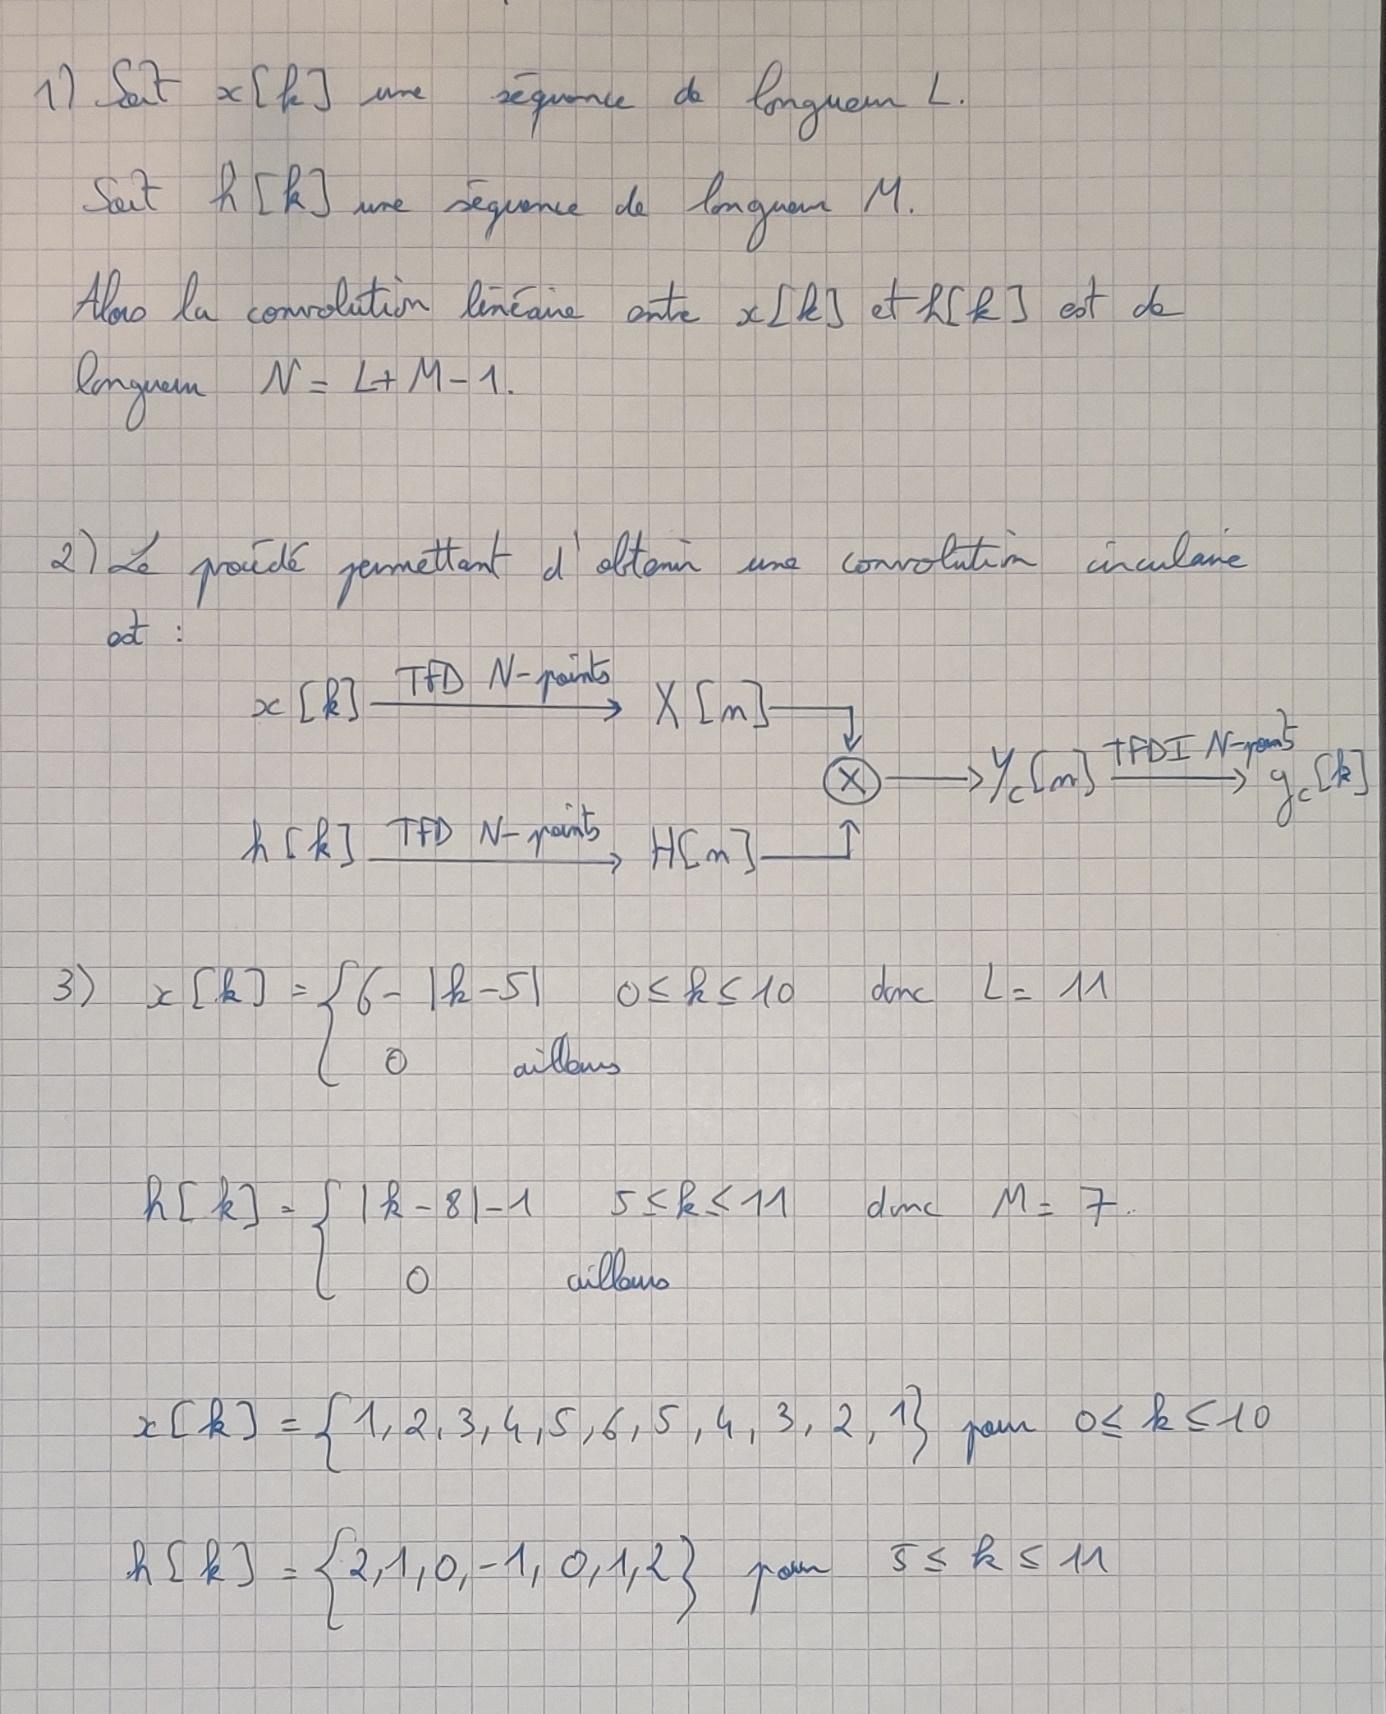 1) Soit x[k] une séquence de longueur L.
Soit h[k] une séquence de longueur M.
Alors la convolution linéaire entre x[k] et h[k] est de
longueur N = L + M - 1.
2) Le procédé permettant d'obtenir une convolution circulaire
est :
x[k] TFD N-points X[n]
× Yc[n] TFDI N-points yc[k]
h[k] TFD N-points H[n]
3) x[k] = { 6 - |k-5| 0 ≤ k ≤ 10 donc L = 11
0 ailleurs
h[k] = { |k-8| - 1 5 ≤ k ≤ 11 donc M = 7.
0 ailleurs
x[k] = {1, 2, 3, 4, 5, 6, 5, 4, 3, 2, 1} pour 0 ≤ k ≤ 10
h[k] = {2, 1, 0, -1, 0, 1, 2} pour 5 ≤ k ≤ 11